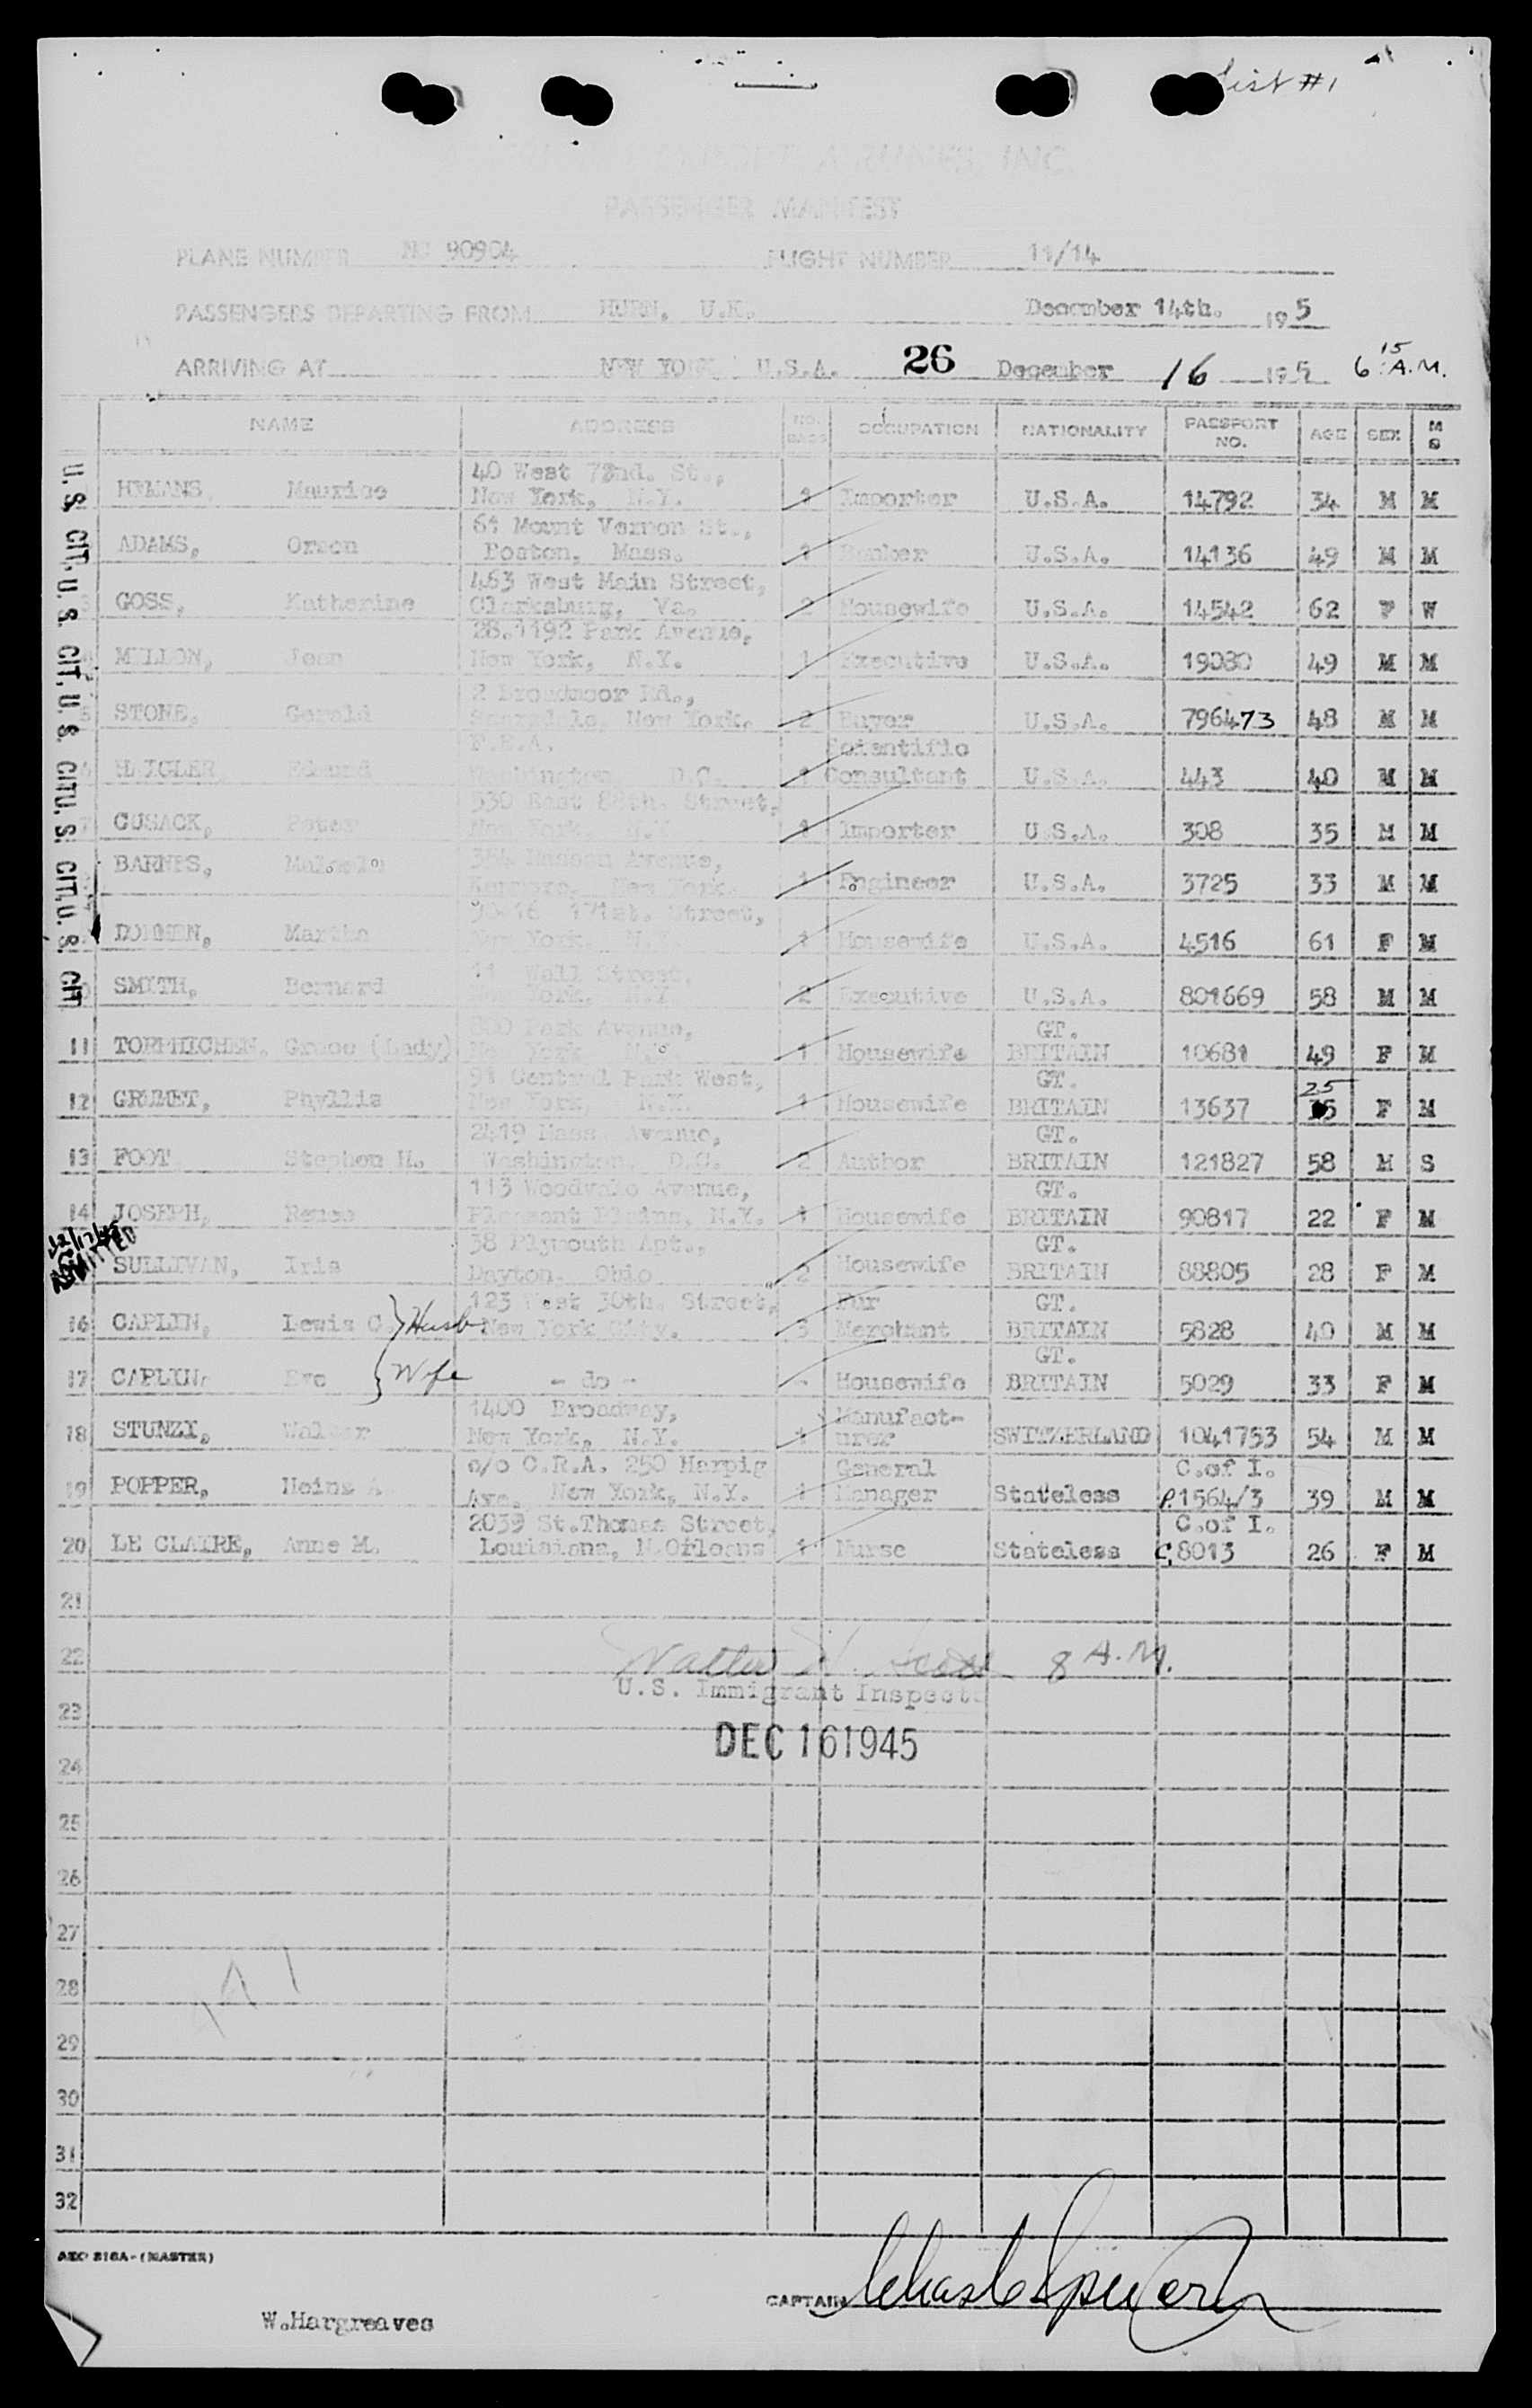 List #1
AIRLINES, INC.
PASSENGER MANIFEST
PLANE NUMBER NC 90904 FLIGHT NUMBER 11/14
PASSENGERS DEPARTING FROM HURN, U.K. December 14th. 195
ARRIVING AT NEW YORK U.S.A. 26 December 16 195 6:15 A.M.
NAME ADDRESS NO. BAGS OCCUPATION NATIONALITY PASSPORT NO. AGE SEX M S
U. S. CIT. U. S. CIT. U. S. CIT U. S. CIT. U. S. CIT
40 West 72nd. St.,
HYMANS, Maurice New York, N.Y. 1 Importer U.S.A. 14792 34 M M
61 Mount Vernon St.,
ADAMS, Orson Boston, Mass. 1 Banker U.S.A. 14136 49 M M
463 West Main Street,
3 GOSS, Katherine Clarksburg, Va. 2 Housewife U.S.A. 14542 62 F W
28.1192 Park Avenue,
MILLON, Jean New York, N.Y. 1 Executive U.S.A. 19080 49 M M
2 Broadmoor Rd.,
5 STONE, Gerald Scarsdale, New York. 2 Buyer U.S.A. 796473 48 M M
F.E.A. Scientific
Edmund Washington D.C. 1 Consultant U.S.A. 443 40 M M
530 East 88th. Street,
7 CUSACK, Peter New York, N.Y. 1 Importer U.S.A. 308 35 M M
BARNES, Avenue,
Kenmore, New York. 1 Engineer U.S.A. 3725 33 M M
171st. Street,
Martha New York, N.Y. 1 Housewife U.S.A. 4516 61 F M
11 Wall Street,
SMITH, Bernard New York, N.Y. 2 Executive U.S.A. 801669 58 M M
Park Avenue, GT.
11 TORPHICHEN, Grace (Lady) New York N.Y. 1 Housewife BRITAIN 10681 49 F M
91 Central Park West, GT. 25
12 GRUMET, Phyllis New York, N.Y. 1 Housewife BRITAIN 13637 F M
2419 Mass. Avenue, GT.
13 FOOT Stephen H. Washington, D.C. 2 Author BRITAIN 121827 58 M S
113 Woodvale Avenue, GT.
14 JOSEPH, Renee Pleasant Plains, N.Y. 1 Housewife BRITAIN 90817 22 F M
12/17/45
ADMITTED
38 Plymouth Apt., GT.
SULLIVAN, Iris Dayton, Ohio 2 Housewife BRITAIN 88805 28 F M
123 West 30th. Street, Fur GT.
16 CAPLIN, Lewis C. } Husb New York City. 3 Merchant BRITAIN 5828 40 M M
GT.
17 CAPLIN, Eve } Wife - do - - Housewife BRITAIN 5029 33 F M
1400 Broadway, Manufact-
18 STUNZI, Walter New York, N.Y. 1 urer SWITZERLAND 1041753 54 M M
c/o C.R.A. 250 Harpig General C.of I.
19 POPPER, Heinz A. Ave. New York, N.Y. 1 Manager Stateless P.1564/3 39 M M
2039 St.Thomas Street, C.of I.
20 LE CLAIRE, Anne M. Louisiana, N.Orleans 1 Nurse Stateless C.8013 26 F M
21
22 Walter 8 A.M.
U.S. Immigrant Inspector
23
DEC 16 1945
24
25
26
27
28
29
30
31
32
AEC 818A-(MASTER)
CAPTAIN
W.Hargreaves